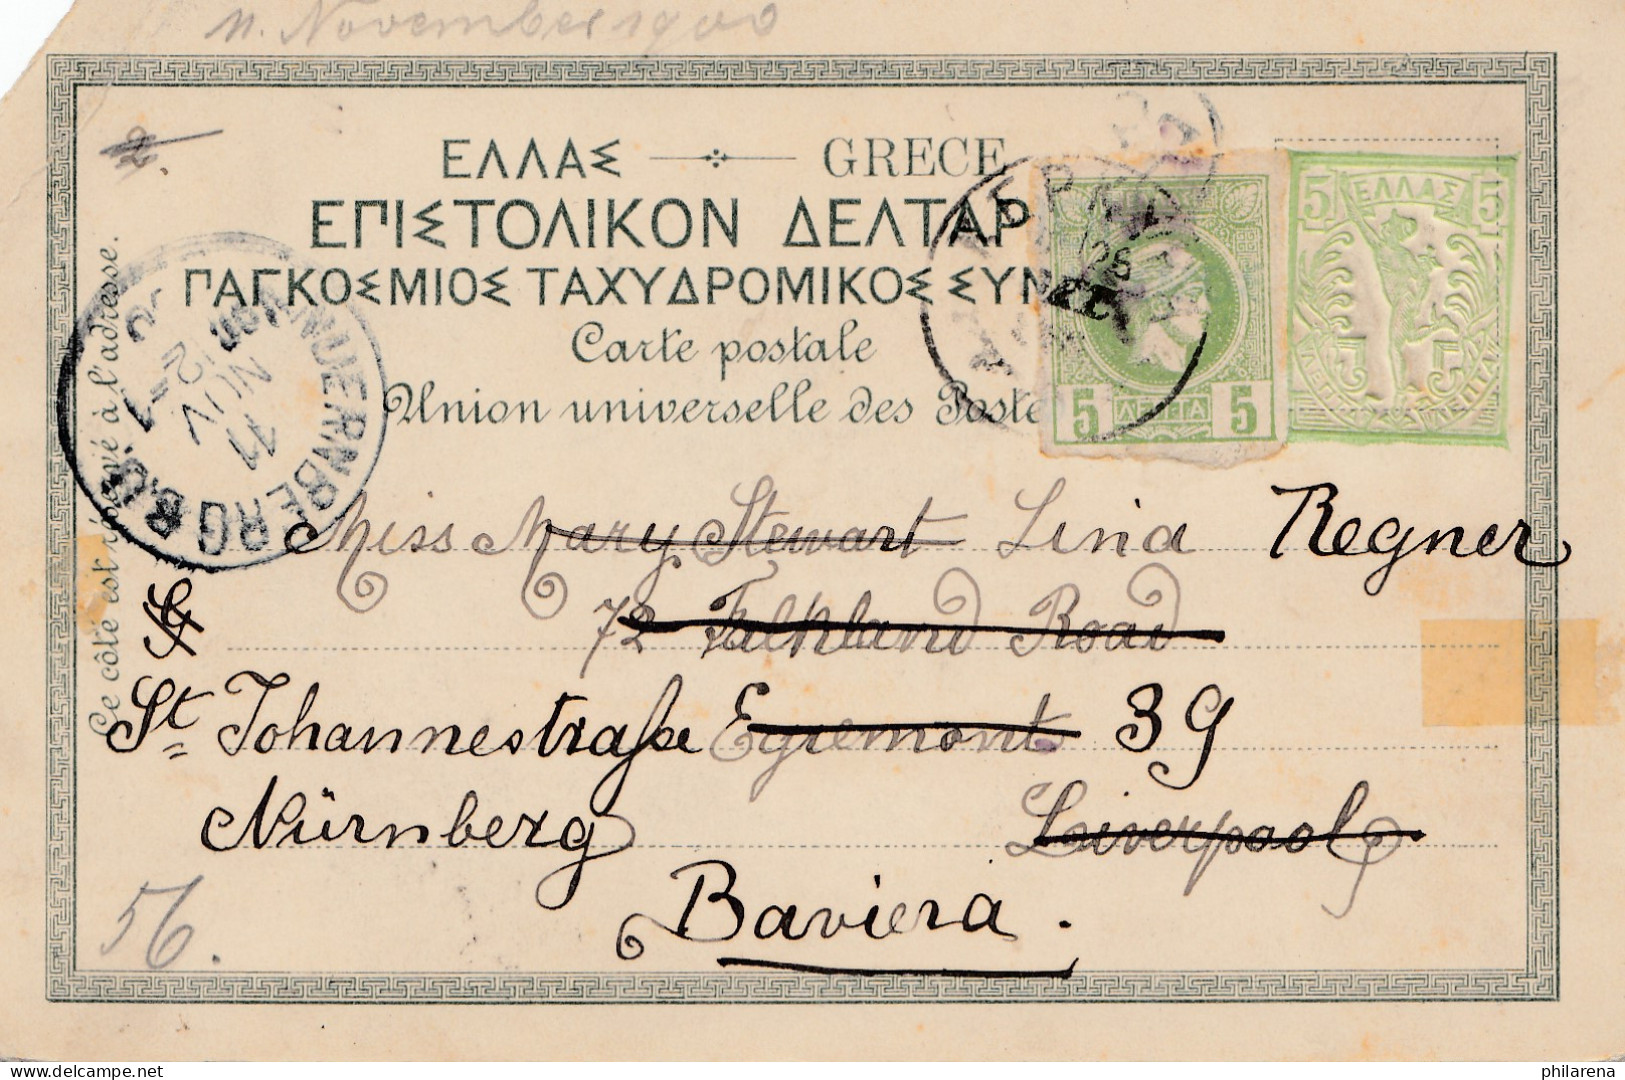 11. November 1900
ΕΛΛΑΣ GRECE
ΕΠΙΣΤΟΛΙΚΟΝ ΔΕΛΤΑΡ
ΠΑΓΚΟΣΜΙΟΣ ΤΑΧΥΔΡΟΜΙΚΟΣ ΣΥΝ
Carte postale
Union universelle des Poste
Ce côté est réservé à l'adresse.
5 ΕΛΛΑΣ 5
5 ΛΕΠΤΑ 5
NUERNBERG
11 NOV
Miss Mary Stewart Lina Regner
72 Falkland Road
St Johannestraße Egremont 39
Nürnberg Liverpool
Baviera.
56.
philarena